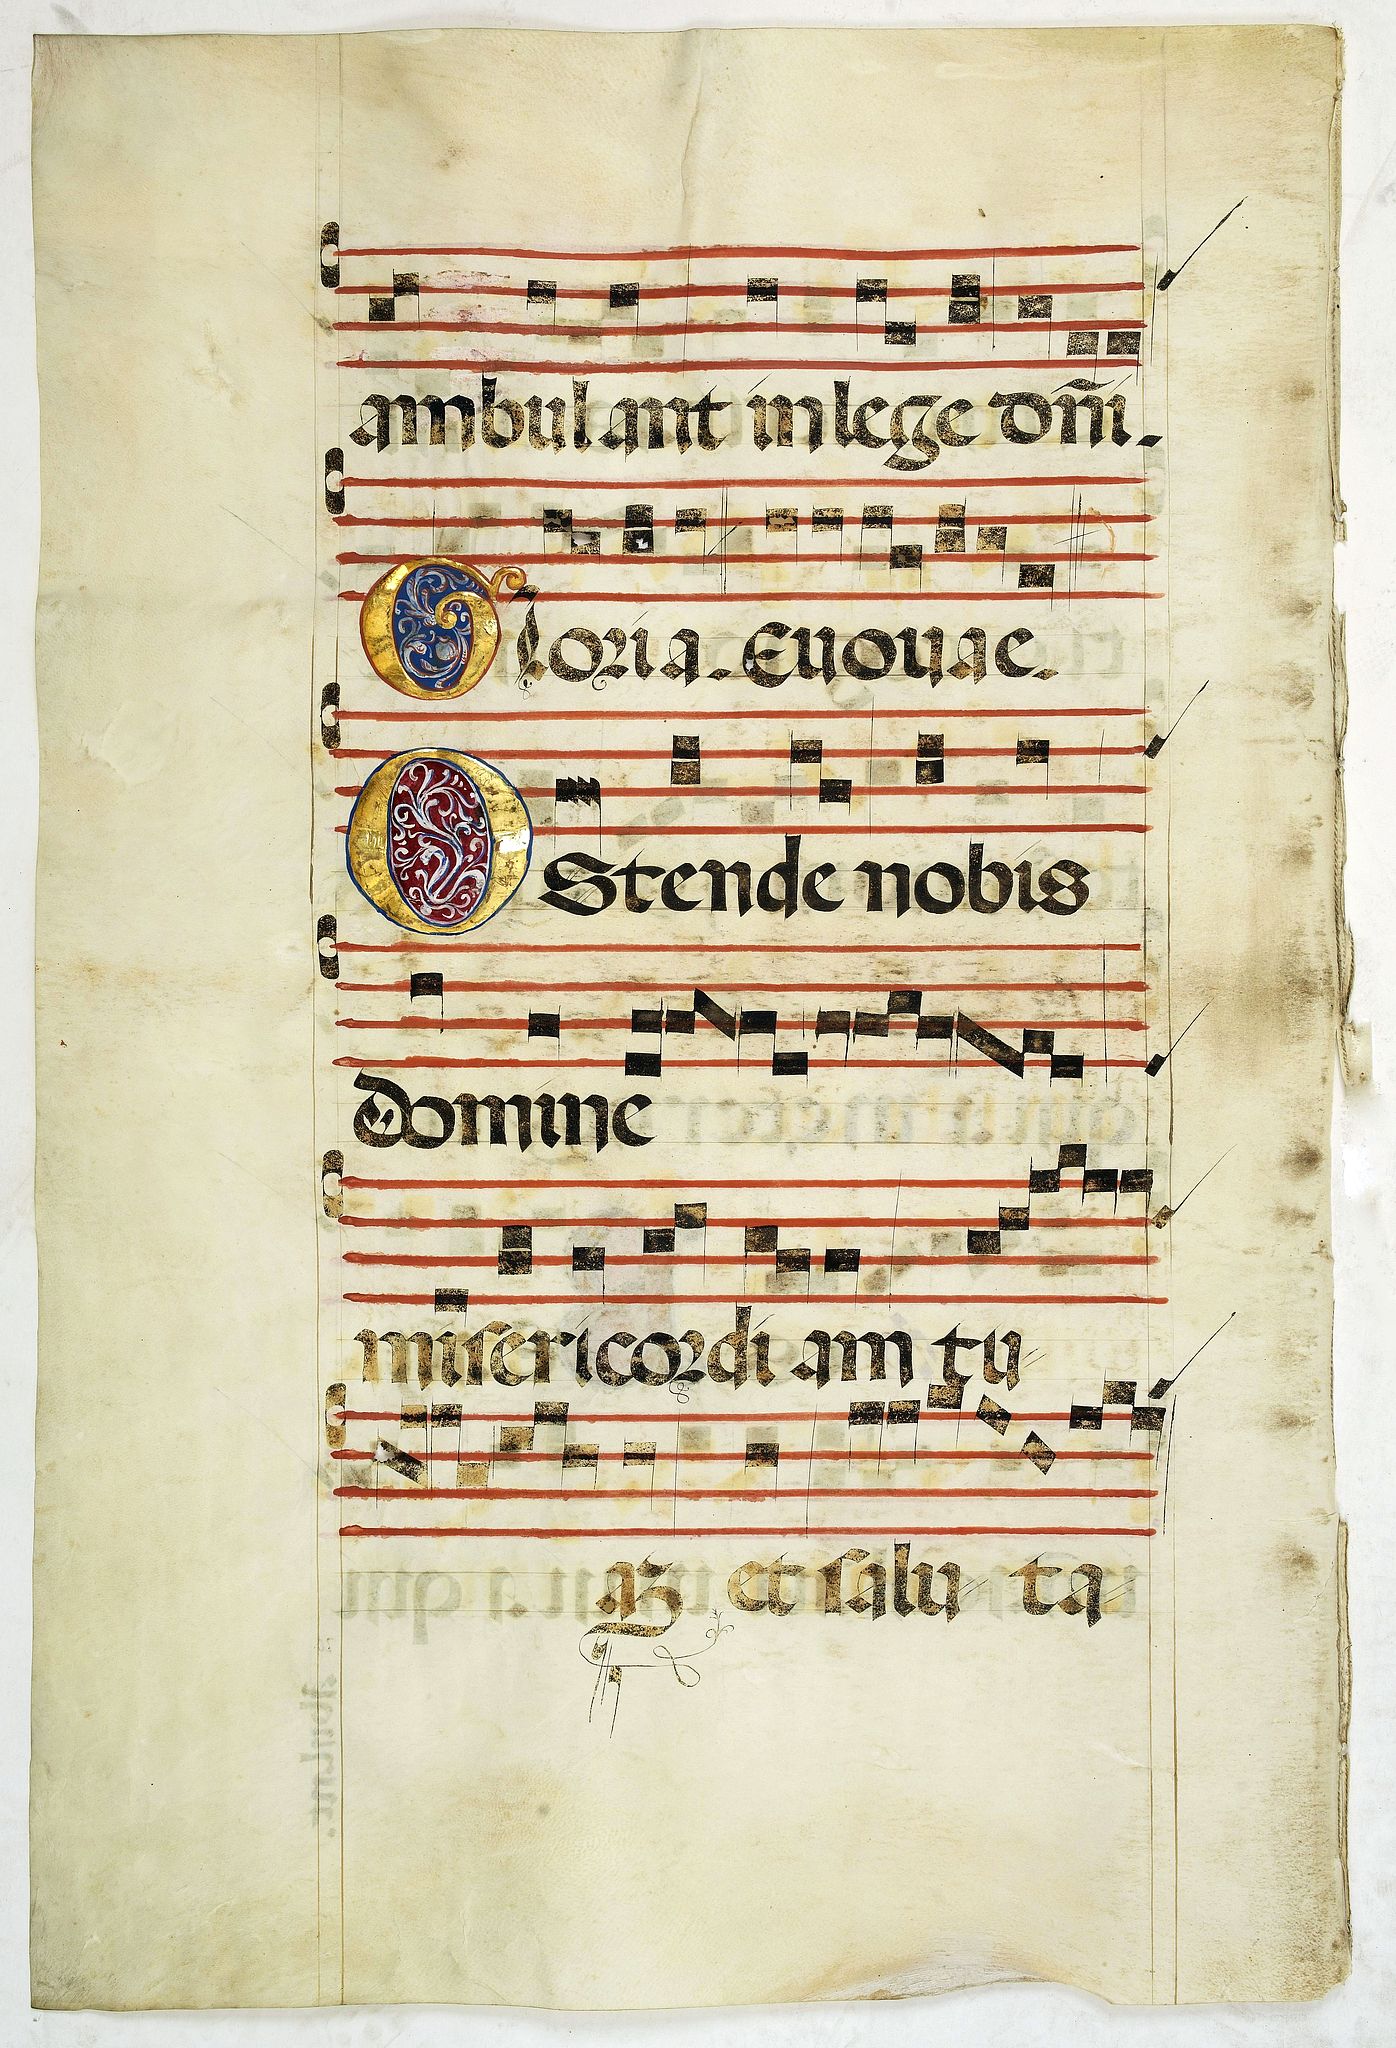 ambulant in lege dñi.
Gloria. Euouae.
OStende nobis
domine
misericordi am tu
az et salu ta